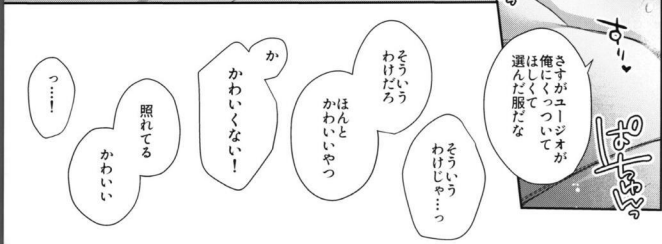 さすがユージオが
俺にくっついて
ほしくて
選んだ服だな
ぱちゅんっ
そういう
わけじゃ…っ
そういう
わけだろ
ほんと
かわいいやつ
か
かわいくない!
照れてる
かわいい
っ…!